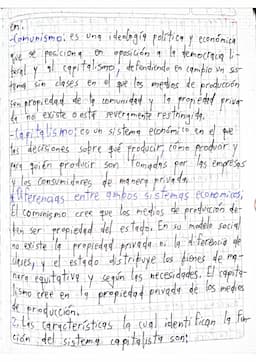 en:
-Comunismo: es una ideología política y económica
que se posiciona en oposición a la democracia li-
beral y al capitalismo, defendiendo en cambio un sis-
tema sin clases en el que los medios de producción
son propiedad de la comunidad y la propiedad priva-
da no existe o está severamente restringida.
-Capitalismo; es un sistema económico en el que
las decisiones sobre qué producir, cómo producir y
para quién producir son tomadas por las empresas
y los consumidores de manera privada.
Diferencias entre ambos sistemas económicos;
El comunismo cree que los medios de producción de-
ben ser propiedad del estado. En su modelo social
no existe la propiedad privada ni la diferencia de
clases, y el estado distribuye los bienes de ma-
nera equitativa y según las necesidades. El capita-
lismo cree en la propiedad privada de los medios
de producción.
2. Las características la cual identifican la fun-
ción del sistema capitalista son: